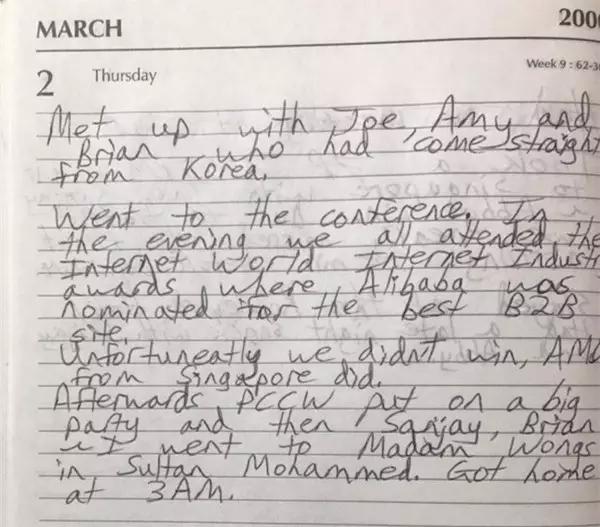 MARCH
200
2 Thursday
Week 9 : 62-30
Met up with Joe, Amy and
Brian who had come straight
from Korea.
Went to the conference. In
the evening we all attended the
Internet World Internet Industr
awards, where Alibaba was
nominated for the best B2B
site.
Unfortuneatly we didn't win, AM
from Singapore did.
Afterwards PCCW put on a big
party and then Sanjay, Brian
+ I went to Madam Wongs
in Sultan Mohammed. Got home
at 3AM.